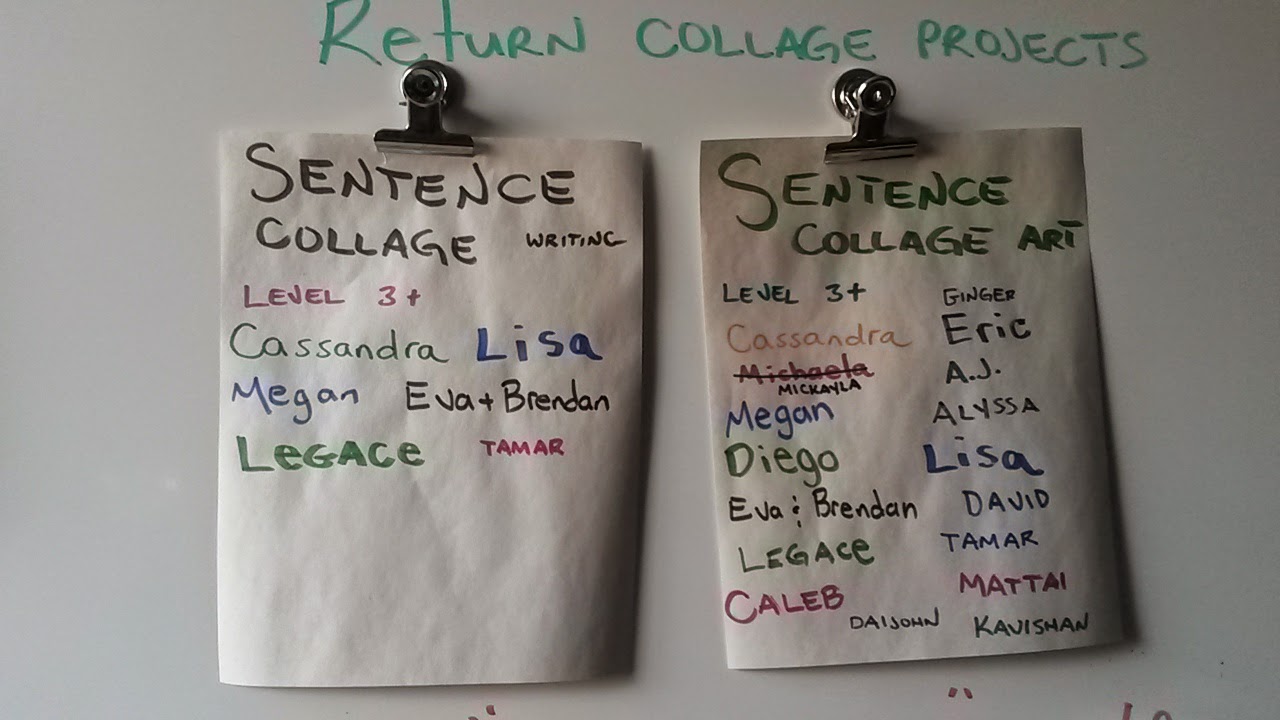 Return COLLAGE PROJECTS
SENTENCE
COLLAGE WRITING
LEVEL 3+
Cassandra Lisa
Megan Eva + Brendan
LEGACe TAMAR
SENTENCE
COLLAGE ART
LEVEL 3+ GINGER
Cassandra Eric
Michaela A.J.
MICKAYLA
Megan ALYSSA
Diego Lisa
Eva & Brendan DAVID
LEGACe TAMAR
CALEB MATTAI
DAIJOHN KAVISHAN